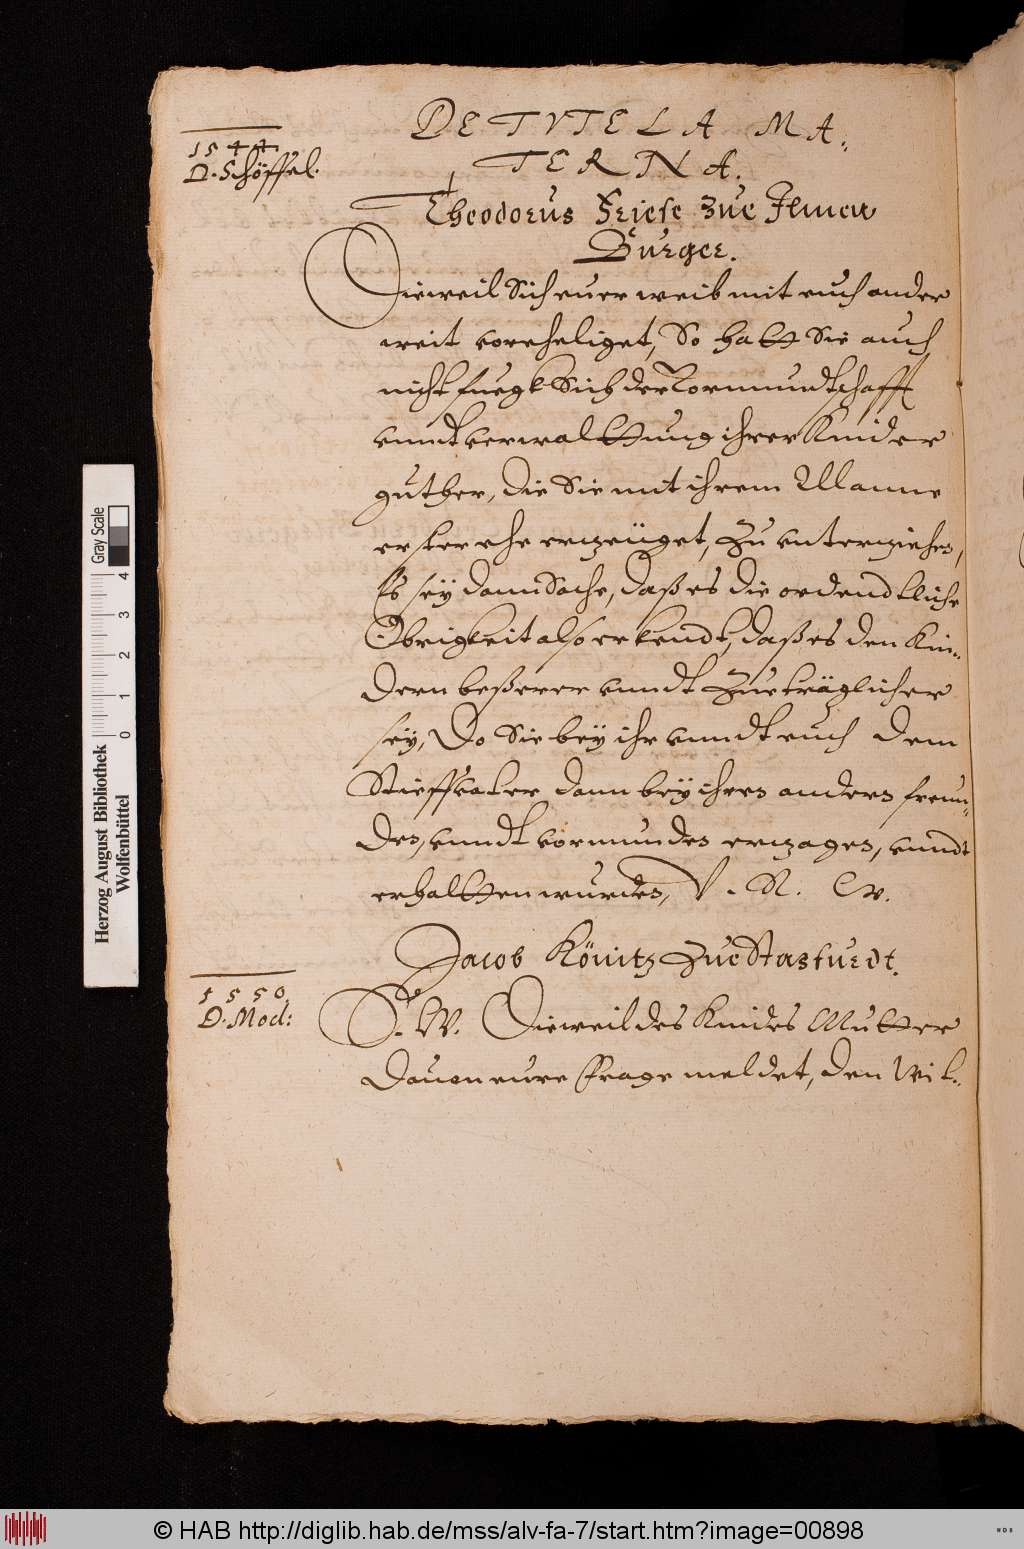 DE TVTELA MA-
TERNA.
1544.
D. Schöffel.
Theodorus Friese zue Ilmen
Burger.
Dieweil Sich euer weib mit euch ander
weit voreheliget, So hatt Sie auch
nicht fuegk Sich der Vormundtschafft
vnndt verwalttung ihrer Kinder
guther, die Sie mit ihrem Manne
erster ehe erzeüget, Zu unterziehen,
Es sey dann Sache, daß es die ordendtliche
Obrigkeit also erkendt, daß es den Kin-
dern beßerer vnndt Zueträglicher
sey, Do Sie bey ihr vnndt euch dem
Stieffvater dann bey ihren andern freun-
den, vnndt vormunden erzogen, vnndt
erhaltten wurden, V. R. W.
Jacob Könitz Zue Stasfurdt.
1550.
D. Mod:
P. W. Dieweil des Kindes Mutter
Dauon eure Frage meldet, den Wit-
Herzog August Bibliothek
Wolfenbüttel
0 1 2 3 4
Gray Scale
© HAB http://diglib.hab.de/mss/alv-fa-7/start.htm?image=00898